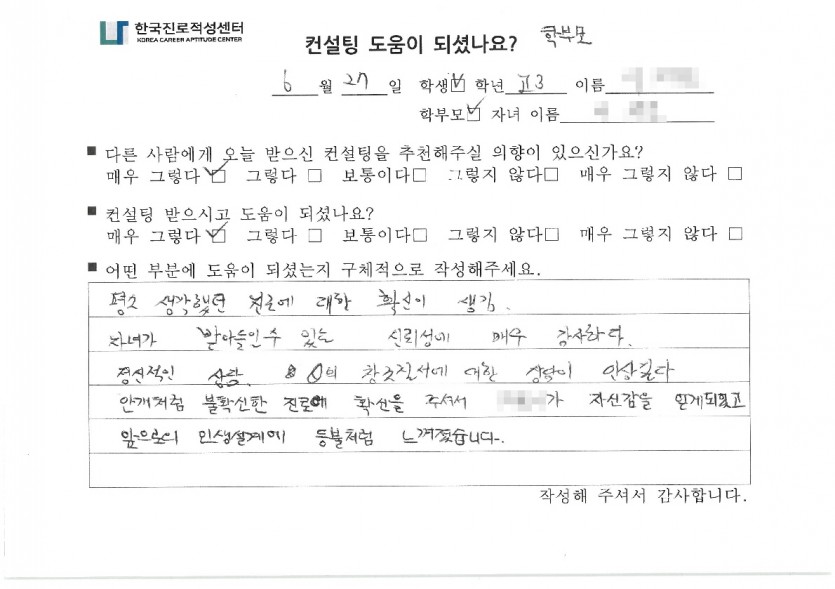 한국진로적성센터
KOREA CAREER APTITUDE CENTER
컨설팅 도움이 되셨나요? 학부모
6 월 27 일 학생☑ 학년 고3 이름
학부모☑ 자녀 이름
■ 다른 사람에게 오늘 받으신 컨설팅을 추천해주실 의향이 있으신가요?
매우 그렇다 ☑ 그렇다 □ 보통이다□ 그렇지 않다□ 매우 그렇지 않다 □
■ 컨설팅 받으시고 도움이 되셨나요?
매우 그렇다 ☑ 그렇다 □ 보통이다□ 그렇지 않다□ 매우 그렇지 않다 □
■ 어떤 부분에 도움이 되셨는지 구체적으로 작성해주세요.
평소 생각했던 진로에 대한 확신이 생김.
자녀가 받아들인수 있는 신뢰성에 매우 감사하다.
정신적인 상담. 의 창조질서에 대한 상담이 인상깊다
안개처럼 불확신한 진로에 확신을 주셔서 가 자신감을 얻게되었고
앞으로의 인생설계에 등불처럼 느껴졌습니다.
작성해 주셔서 감사합니다.